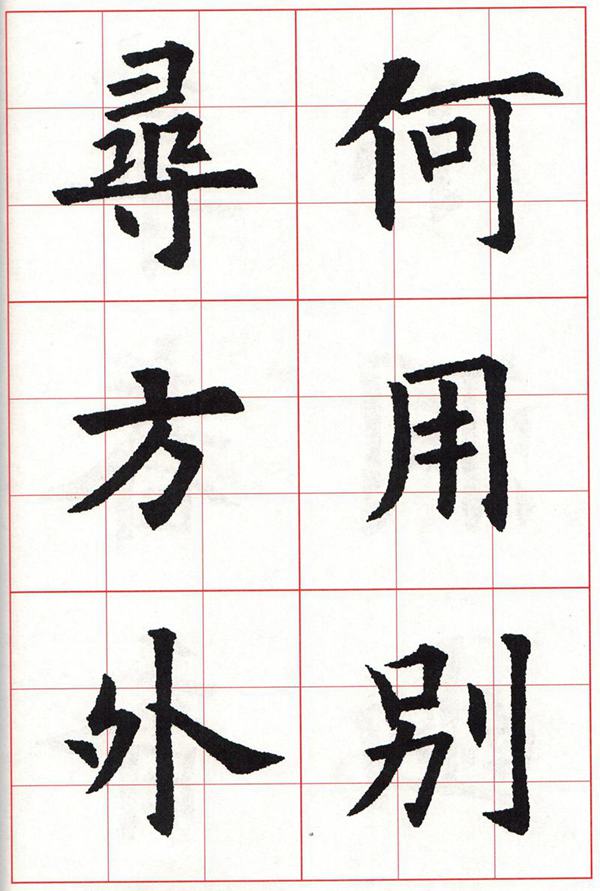 何用别
尋方外